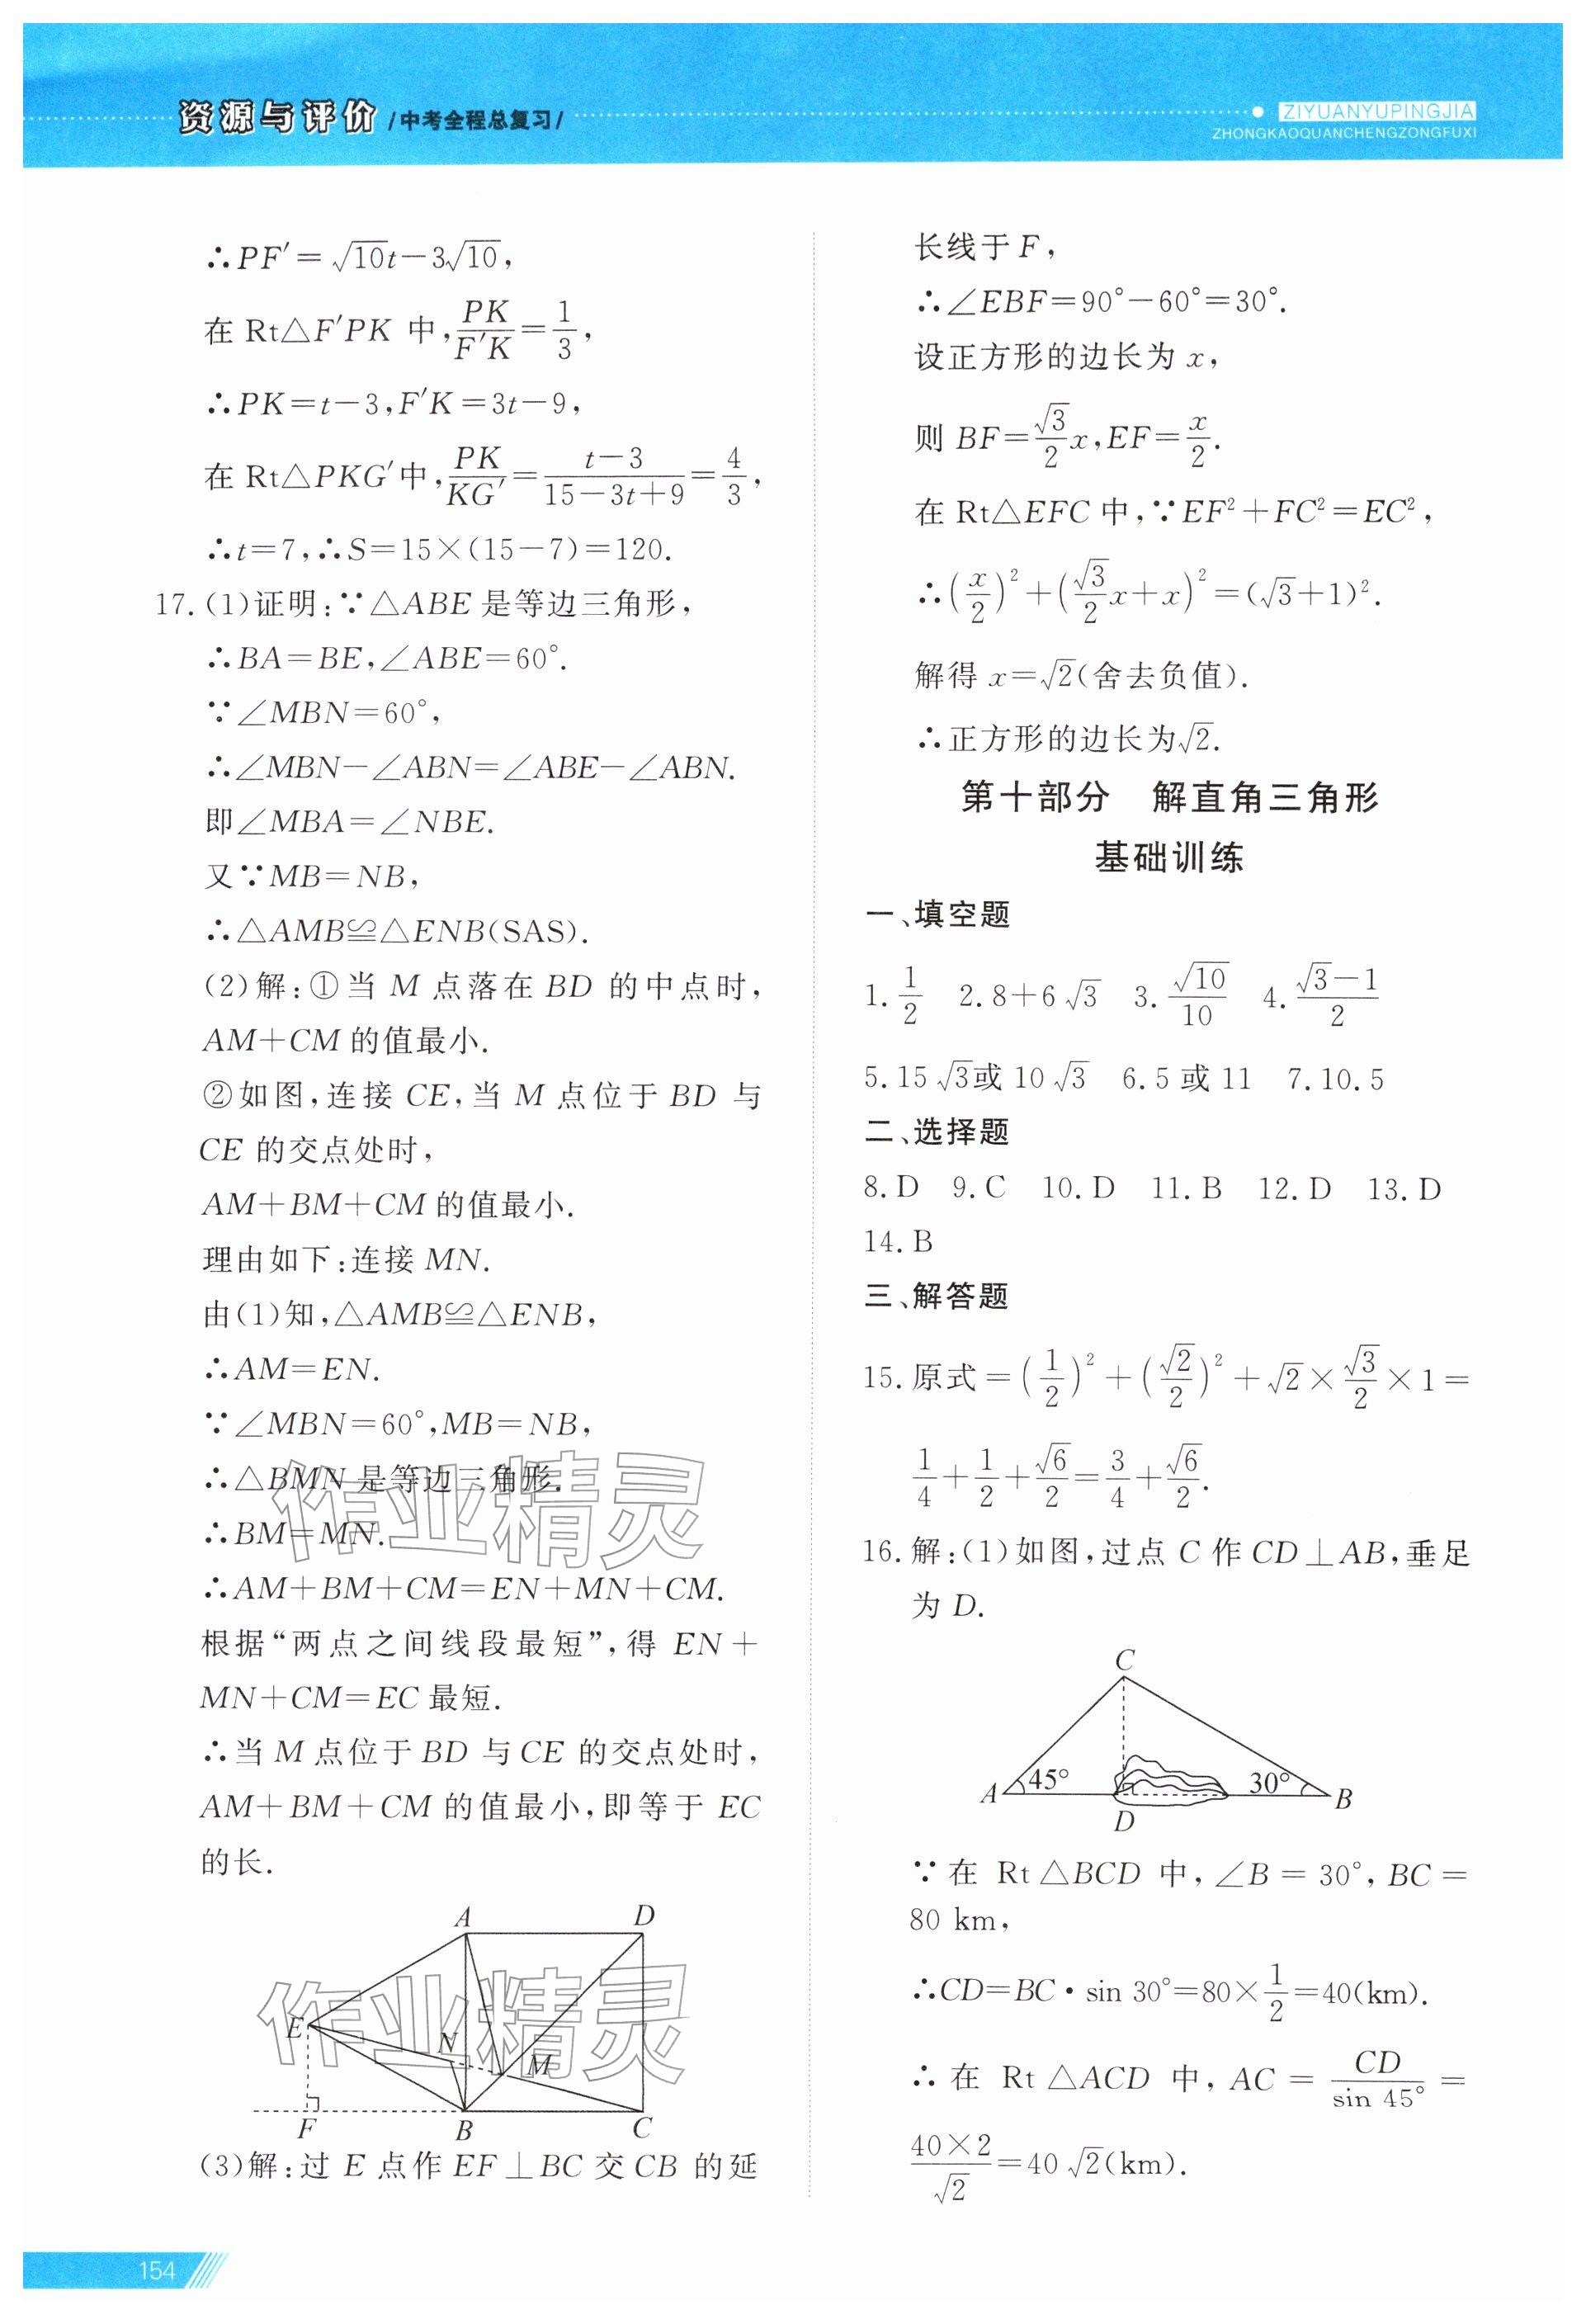 资源与评价 /中考全程总复习/
ZIYUANYUPINGJIA
ZHONGKAOQUANCHENGZONGFUXI
∴PF′=√10t−3√10,
在 Rt△F′PK 中,PK/F′K=1/3,
∴PK=t−3,F′K=3t−9,
在 Rt△PKG′中,PK/KG′=(t−3)/(15−3t+9)=4/3,
∴t=7,∴S=15×(15−7)=120.
17.(1)证明:∵△ABE 是等边三角形,
∴BA=BE,∠ABE=60°.
∵∠MBN=60°,
∴∠MBN−∠ABN=∠ABE−∠ABN.
即∠MBA=∠NBE.
又∵MB=NB,
∴△AMB≌△ENB(SAS).
(2)解:①当 M 点落在 BD 的中点时,
AM+CM 的值最小.
②如图,连接 CE,当 M 点位于 BD 与
CE 的交点处时,
AM+BM+CM 的值最小.
理由如下:连接 MN.
由(1)知,△AMB≌△ENB,
∴AM=EN.
∵∠MBN=60°,MB=NB,
∴△BMN 是等边三角形.
∴BM=MN.
∴AM+BM+CM=EN+MN+CM.
根据“两点之间线段最短”,得 EN+
MN+CM=EC 最短.
∴当 M 点位于 BD 与 CE 的交点处时,
AM+BM+CM 的值最小,即等于 EC
的长.
A D
E N M
F B C
(3)解:过 E 点作 EF⊥BC 交 CB 的延
长线于 F,
∴∠EBF=90°−60°=30°.
设正方形的边长为 x,
则 BF=√3/2 x,EF=x/2.
在 Rt△EFC 中,∵EF²+FC²=EC²,
∴(x/2)²+(√3/2 x+x)²=(√3+1)².
解得 x=√2(舍去负值).
∴正方形的边长为√2.
第十部分 解直角三角形
基础训练
一、填空题
1. 1/2 2. 8+6√3 3. √10/10 4. (√3−1)/2
5. 15√3或 10√3 6. 5 或 11 7. 10.5
二、选择题
8. D 9. C 10. D 11. B 12. D 13. D
14. B
三、解答题
15. 原式=(1/2)²+(√2/2)²+√2×√3/2×1=
1/4+1/2+√6/2=3/4+√6/2.
16. 解:(1)如图,过点 C 作 CD⊥AB,垂足
为 D.
C
A 45° 30° B
D
∵在 Rt△BCD 中,∠B=30°,BC=
80 km,
∴CD=BC·sin 30°=80×1/2=40(km).
∴在 Rt△ACD 中,AC=CD/sin 45°=
40×2/√2=40√2(km).
作业精灵
作业精灵
154